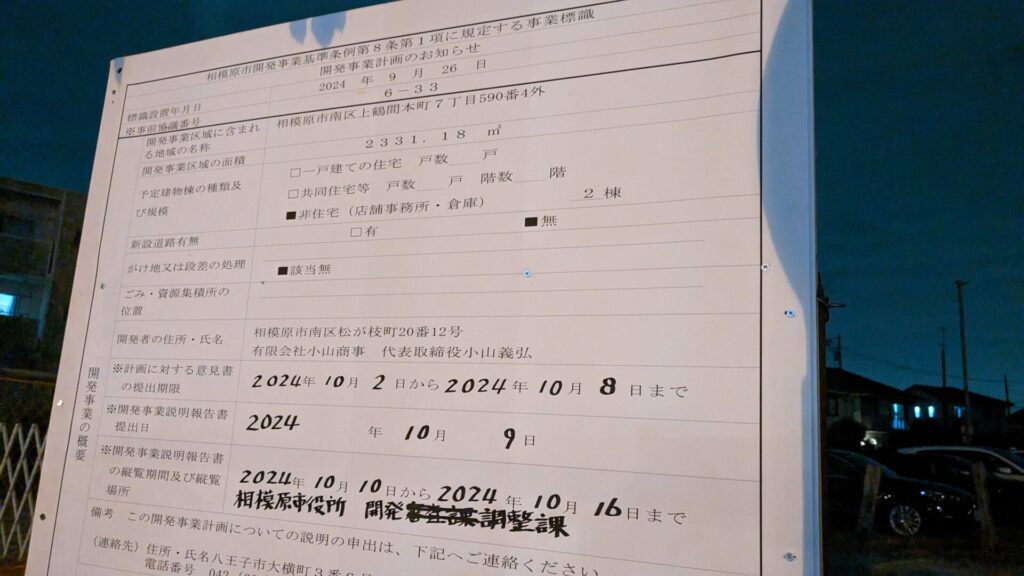 相模原市開発事業基準条例第8条第1項に規定する事業標識
開発事業計画のお知らせ
標識設置年月日 2024 年 9 月 26 日
※事前協議番号 6-33
開発事業区域に含まれる地域の名称 相模原市南区上鶴間本町7丁目590番4外
開発事業区域の面積 2331.18 ㎡
予定建物棟の種類及び規模 □一戸建ての住宅 戸数 戸
□共同住宅等 戸数 戸 階数 階
■非住宅(店舗事務所・倉庫) 2 棟
新設道路有無 □有 ■無
がけ地又は段差の処理 ■該当無
ごみ・資源集積所の位置
開発者の住所・氏名 相模原市南区松が枝町20番12号
有限会社小山商事 代表取締役小山義弘
開発事業の概要
※計画に対する意見書の提出期限 2024年 10月 2日から 2024年 10月 8日まで
※開発事業説明報告書提出日 2024 年 10月 9日
※開発事業説明報告書の縦覧期間及び縦覧場所 2024年 10月 10日から 2024年 10月 16日まで
相模原市役所 開発調整課
備考 この開発事業計画についての説明の申出は、下記へご連絡ください
(連絡先)住所・氏名八王子市大横町3番
電話番号 042